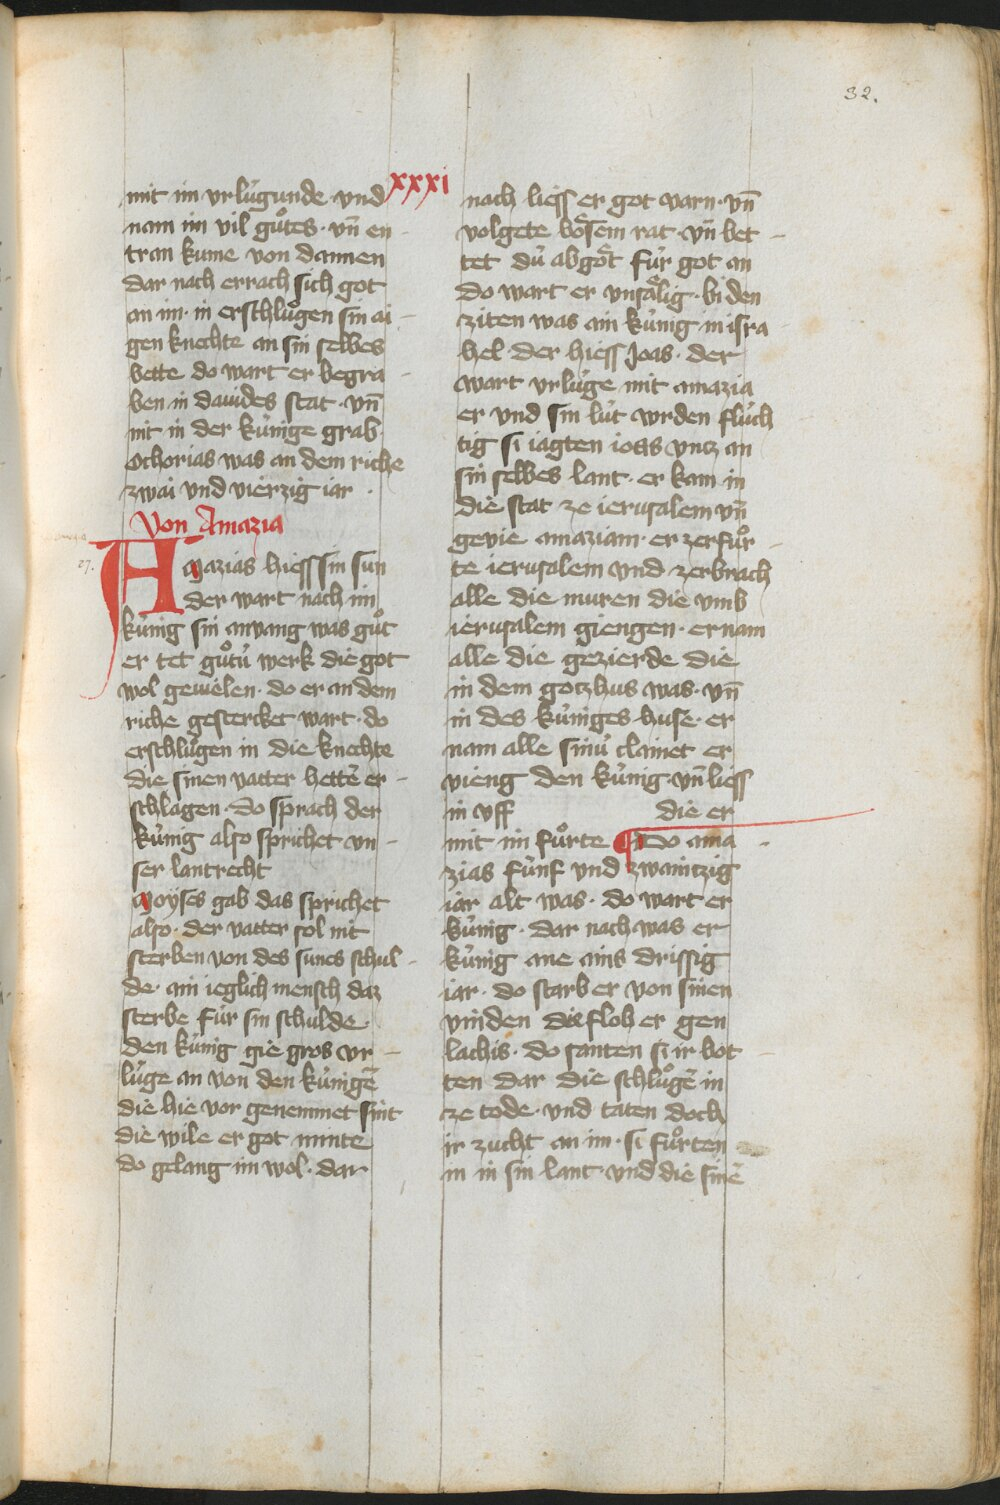 32.
xxxi
mit im vrlu̍gunde vnd
nam im vil gůtes · vn̄ en
tran kume von dannen
dar nach errach sich got
an im · in erschlůgen sin ai
gen knechte an sin selbes
bette do wart er begra
ben in dauides stat · vn̄
nit in der ku̍nige grab ·
ochorias was an dem riche
zwai vnd vierzig iar ·
Von Amazia
27.
Amazias hiess sin sun
der wart nach im
ku̍nig sin anvang was gůt
er tet gůtu̍ werk die got
wol geuielen · do er an dem
riche gestercket wart · do
erschlůgen in die knechte
die sinen vatter hettē er
schlagen · do sprach der
ku̍nig also sprichet vn
ser lantrecht
Moyses gab das sprichet
also · der vatter sol nit
sterben von des sunes schul
de · ain ieglich mensch daz
sterbe fu̍r sin schulde ·
den ku̍nig gie gros vr
lu̍ge an von den ku̍nigē
die hie vor genemmet sint
die wile er got minte
do gelang im wol · dar
nach liess er got varn · vn̄
volgete boͤsem rat · vn̄ bet
tet du̍ abgoͤt fu̍r got an
do wart er vnsaͤlig · bi den
ziten was ain ku̍nig in isra
hel · der hiess Joas · der
wart vrlu̍ge mit amazia
er vnd sin lu̍t wrden flu̍ch
tig si iagten ioas vntz an
sin selbes lant · er kam in
die stat ze ierusalem vn̄
gevie amaziam · er zerfůr
te ierusalem vnd zerbrach
alle die muren die vmb
ierusalem giengen · er nam
alle die gezierde die
in dem gotzhus was · vn̄
in des ku̍niges huse · er
nam alle sinu̍ clainet er
vieng den ku̍nig · vn̄ liess
in vff die er
mit im fůrte Do ama
zias fu̍nf vnd zwaintzig
iar alt was · do wart er
ku̍nig · dar nach was er
ku̍nig ane ains drissig
iar · do starb er von sinen
vinden die floh er gen
lachis · do santen si ir bot
ten dar die schlůgē in
ze tode · vnd taten doch
ir zucht an im · si fůrten
in in sin lant · vnd die sinē